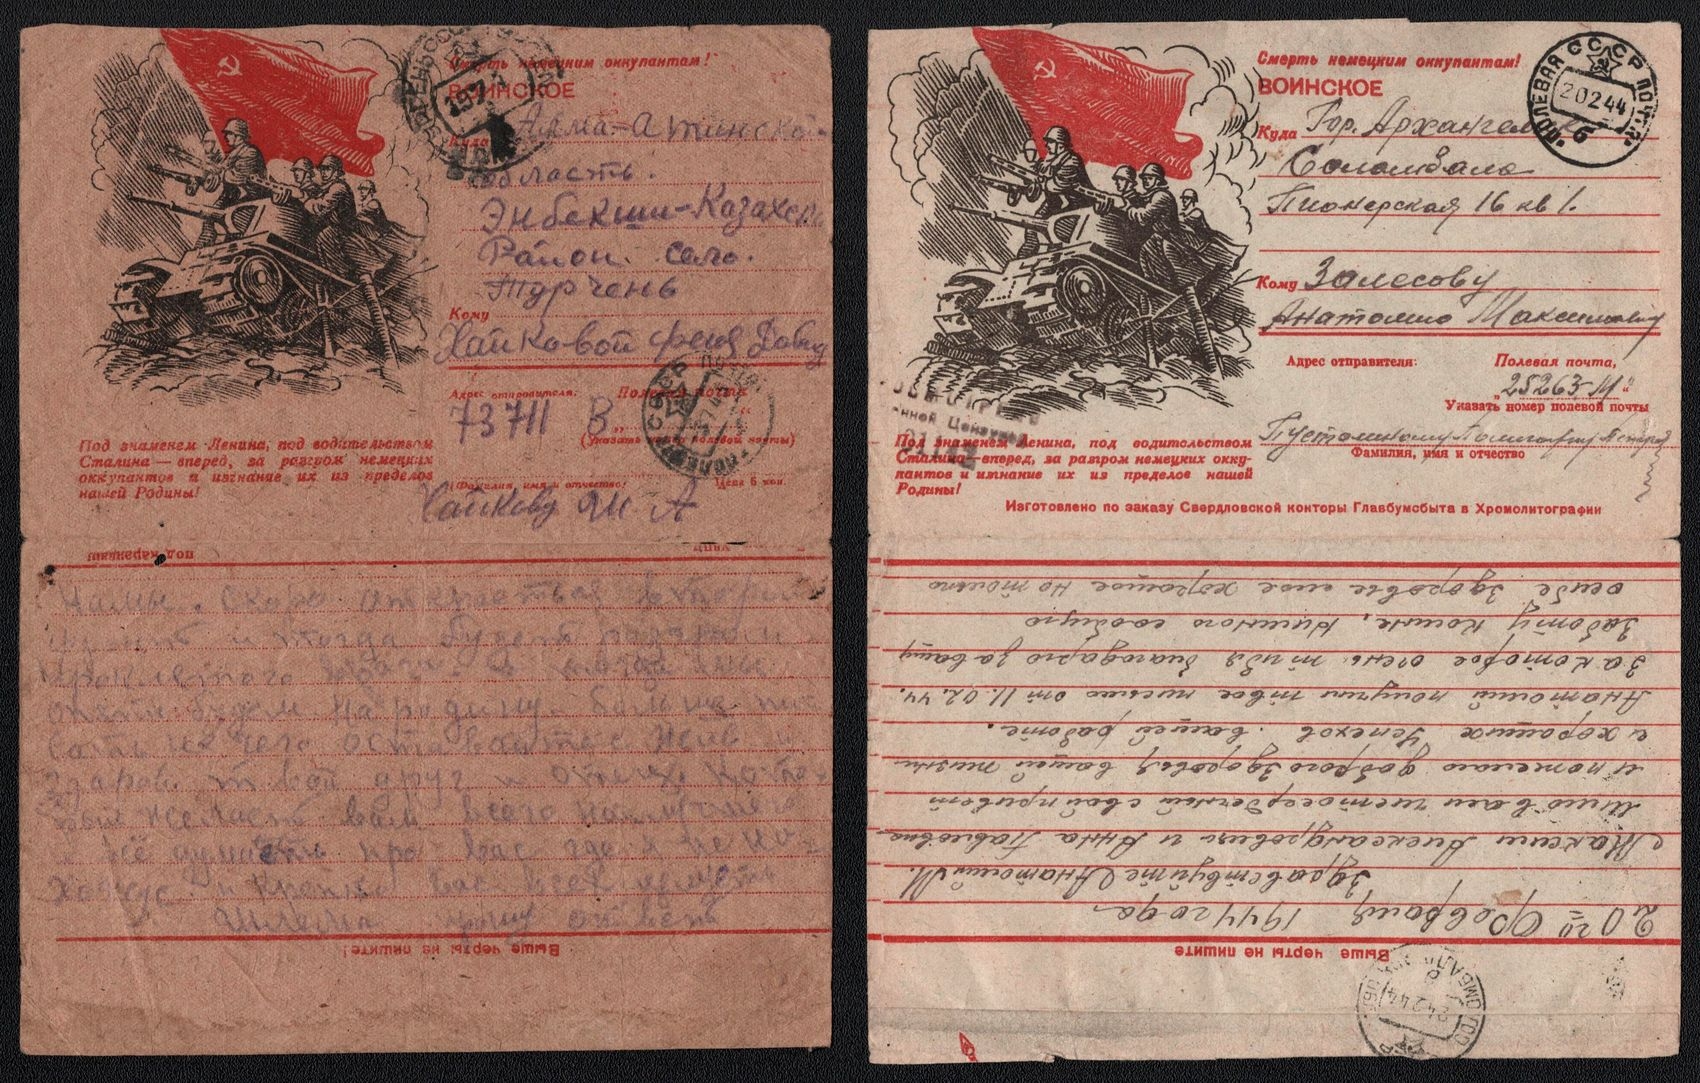 Смерть немецким оккупантам!
ВОИНСКОЕ
Куда Алма-Атинская
область.
Энбекши-Казахск
Район. село.
Тургень
Кому
Хайковой Феня Давид
Адрес отправителя: Полевая почта
73711 В
(Указать номер полевой почты)
(Фамилия, имя и отчество) Цена 6 коп.
Хайкову Ш. А
Под знаменем Ленина, под водительством
Сталина — вперед, за разгром немецких
оккупантов и изгнание их из пределов
нашей Родины!
под карандаш
нами. Скоро откроется второй
фронт и тогда будет
проклятого врага и тогда мы
опять будем на родину больше пи-
сать не чего оставайтес жив и
здаров твой друг и отец
желаеть вам всего наилучшего
всё думаеть про вас где я не на-
хожус и крепко вас всех целует
жду ответ
Выше черты не пишите!
Смерть немецким оккупантам!
ВОИНСКОЕ
ПОЛЕВАЯ ПОЧТА СССР
20244
6
Куда Гор. Архангельск
Соломбала
Пионерская 16 кв 1.
Кому Залесову
Анатолию Максимовичу
Адрес отправителя: Полевая почта,
"25263-И"
Указать номер полевой почты
Фамилия, имя и отчество
Под знаменем Ленина, под водительством
Сталина—вперед, за разгром немецких окку-
пантов и изгнание их из пределов нашей
Родины!
Изготовлено по заказу Свердловской конторы Главбумсбыта в Хромолитографии
20го Февраля 1944 года
Здравствуйте Анатолий М.
Максим Александрович и Анна Павловна
Шлю вам чистосердечный свой привет
и пожелаю доброго здоровья вашей жизни
и хороших успехов вашей работе.
Анатолий получил твое письмо от 11.02.44.
за которое очень тибя благодарю за вашу
заботу комне, Немного сообщую
осибе здоровье мое хорошое но только
Выше черты не пишите!